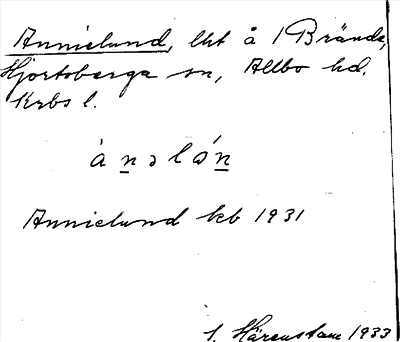 Annielund, lht å 1 Brända,
Hjortsberga sn, Allbo hd.
Krbs l.
ànəlón
Annielund kb 1931
S. Härenstam 1933